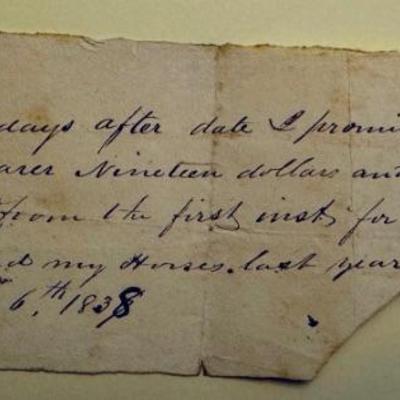 days after date I promi
arer Nineteen dollars and
from the first inst for
d my Horses last year
6th 1838